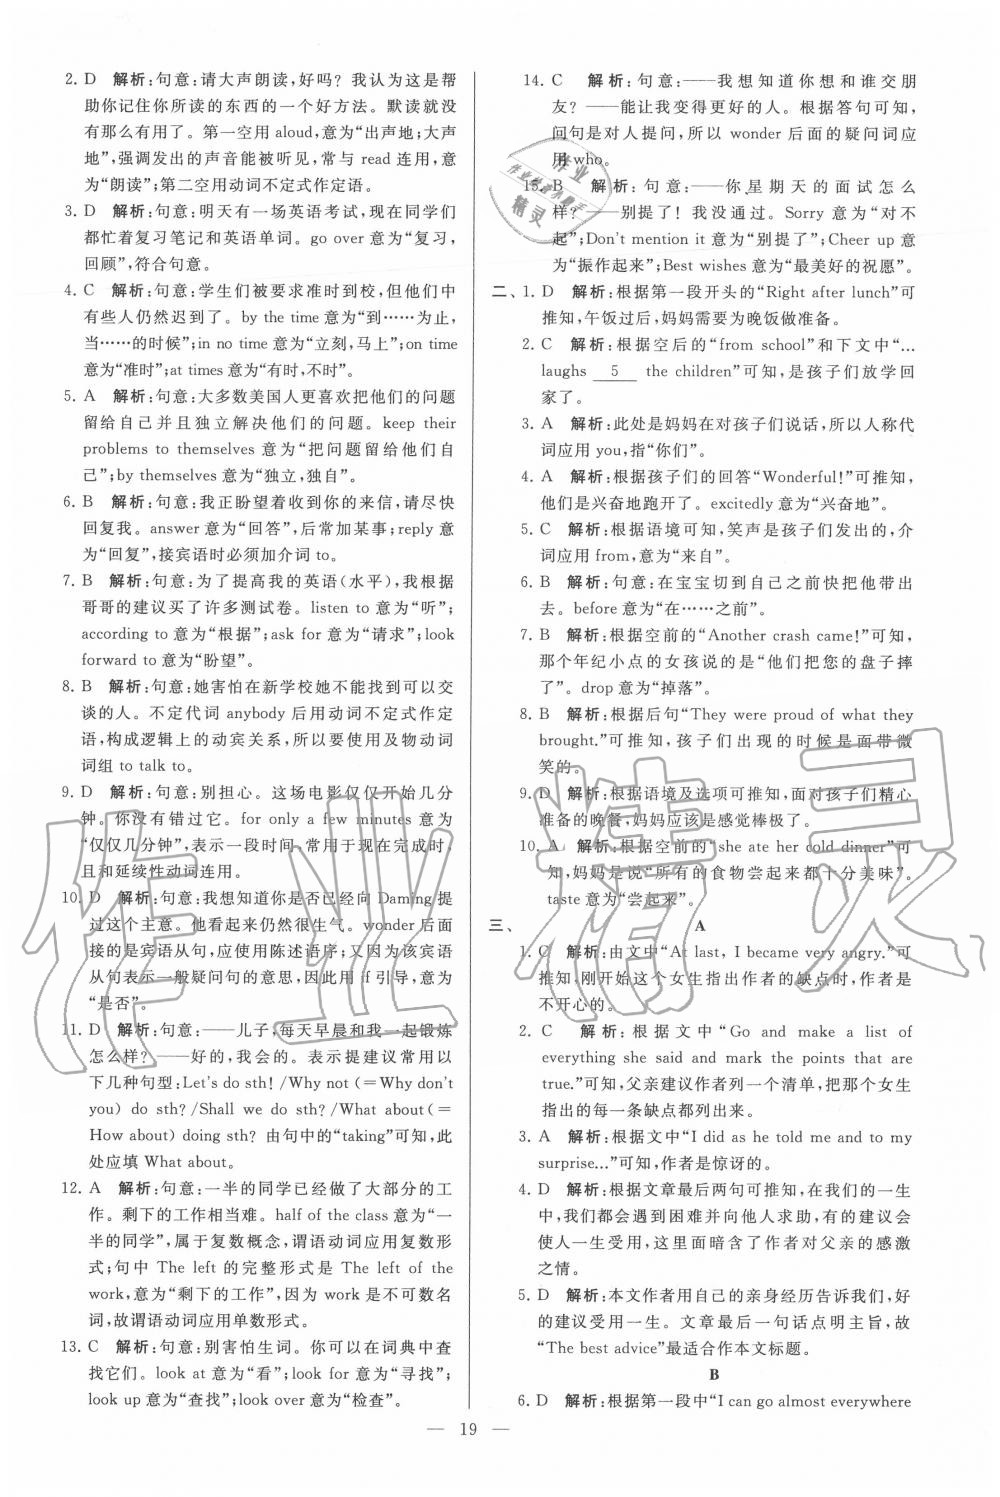 2. D 解析:句意:请大声朗读,好吗? 我认为这是帮
助你记住你所读的东西的一个好方法。默读就没
有那么有用了。第一空用 aloud,意为“出声地;大声
地”,强调发出的声音能被听见,常与 read 连用,意
为“朗读”;第二空用动词不定式作定语。
3. D 解析:句意:明天有一场英语考试,现在同学们
都忙着复习笔记和英语单词。go over 意为“复习,
回顾”,符合句意。
4. C 解析:句意:学生们被要求准时到校,但他们中
有些人仍然迟到了。by the time 意为“到……为止,
当……的时候”;in no time 意为“立刻,马上”;on time
意为“准时”;at times 意为“有时,不时”。
5. A 解析:句意:大多数美国人更喜欢把他们的问题
留给自己并且独立解决他们的问题。keep their
problems to themselves 意为“把问题留给他们自
己”;by themselves 意为“独立,独自”。
6. B 解析:句意:我正盼望着收到你的来信,请尽快
回复我。answer 意为“回答”,后常加某事;reply 意
为“回复”,接宾语时必须加介词 to。
7. B 解析:句意:为了提高我的英语(水平),我根据
哥哥的建议买了许多测试卷。listen to 意为“听”;
according to 意为“根据”;ask for 意为“请求”;look
forward to 意为“盼望”。
8. B 解析:句意:她害怕在新学校她不能找到可以交
谈的人。不定代词 anybody 后用动词不定式作定
语,构成逻辑上的动宾关系,所以要使用及物动词
词组 to talk to。
9. D 解析:句意:别担心。这场电影仅仅开始几分
钟。你没有错过它。for only a few minutes 意为
“仅仅几分钟”,表示一段时间,常用于现在完成时,
且和延续性动词连用。
10. D 解析:句意:我想知道你是否已经向 Daming 提
过这个主意。他看起来仍然很生气。wonder 后面
接的是宾语从句,应使用陈述语序;又因为该宾语
从句表示一般疑问句的意思,因此用 if 引导,意为
“是否”。
11. D 解析:句意:——儿子,每天早晨和我一起锻炼
怎么样? ——好的,我会的。表示提建议常用以
下几种句型:Let's do sth! /Why not (=Why don't
you) do sth? /Shall we do sth? /What about(=
How about) doing sth? 由句中的“taking”可知,此
处应填 What about。
12. A 解析:句意:一半的同学已经做了大部分的工
作。剩下的工作相当难。half of the class 意为“一
半的同学”,属于复数概念,谓语动词应用复数形
式;句中 The left 的完整形式是 The left of the
work,意为“剩下的工作”,因为 work 是不可数名
词,故谓语动词应用单数形式。
13. C 解析:句意:别害怕生词。你可以在词典中查
找它们。look at 意为“看”;look for 意为“寻找”;
look up 意为“查找”;look over 意为“检查”。
14. C 解析:句意:——我想知道你想和谁交朋
友? ——能让我变得更好的人。根据答句可知,
问句是对人提问,所以 wonder 后面的疑问词应
用 who。
15. B 解析:句意:——你星期天的面试怎么
样? ——别提了! 我没通过。Sorry 意为“对不
起”;Don't mention it 意为“别提了”;Cheer up 意
为“振作起来”;Best wishes 意为“最美好的祝愿”。
二、1. D 解析:根据第一段开头的“Right after lunch”可
推知,午饭过后,妈妈需要为晚饭做准备。
2. C 解析:根据空后的“from school”和下文中“...
laughs 5 the children”可知,是孩子们放学回
家了。
3. A 解析:此处是妈妈在对孩子们说话,所以人称代
词应用 you,指“你们”。
4. A 解析:根据孩子们的回答“Wonderful!”可推知,
他们是兴奋地跑开了。excitedly 意为“兴奋地”。
5. C 解析:根据语境可知,笑声是孩子们发出的,介
词应用 from,意为“来自”。
6. B 解析:句意:在宝宝切到自己之前快把他带出
去。before 意为“在……之前”。
7. B 解析:根据空前的“Another crash came!”可知,
那个年纪小点的女孩说的是“他们把您的盘子摔
了”。drop 意为“掉落”。
8. B 解析:根据后句“They were proud of what they
brought.”可推知,孩子们出现的时候是面带微
笑的。
9. D 解析:根据语境及选项可推知,面对孩子们精心
准备的晚餐,妈妈应该是感觉棒极了。
10. A 解析:根据空前的“she ate her cold dinner”可
知,妈妈是说“所有的食物尝起来都十分美味”。
taste 意为“尝起来”。
三、 A
1. C 解析:由文中“At last, I became very angry.”可
推知,刚开始这个女生指出作者的缺点时,作者是
不开心的。
2. C 解析:根据文中“Go and make a list of
everything she said and mark the points that are
true.”可知,父亲建议作者列一个清单,把那个女生
指出的每一条缺点都列出来。
3. A 解析:根据文中“I did as he told me and to my
surprise...”可知,作者是惊讶的。
4. D 解析:根据文章最后两句可推知,在我们的一生
中,我们都会遇到困难并向他人求助,有的建议会
使人一生受用,这里面暗含了作者对父亲的感激
之情。
5. D 解析:本文作者用自己的亲身经历告诉我们,好
的建议受用一生。文章最后一句话点明主旨,故
“The best advice”最适合作本文标题。
B
6. D 解析:根据第一段中“I can go almost everywhere
— 19 —
作业精灵
作业
精灵